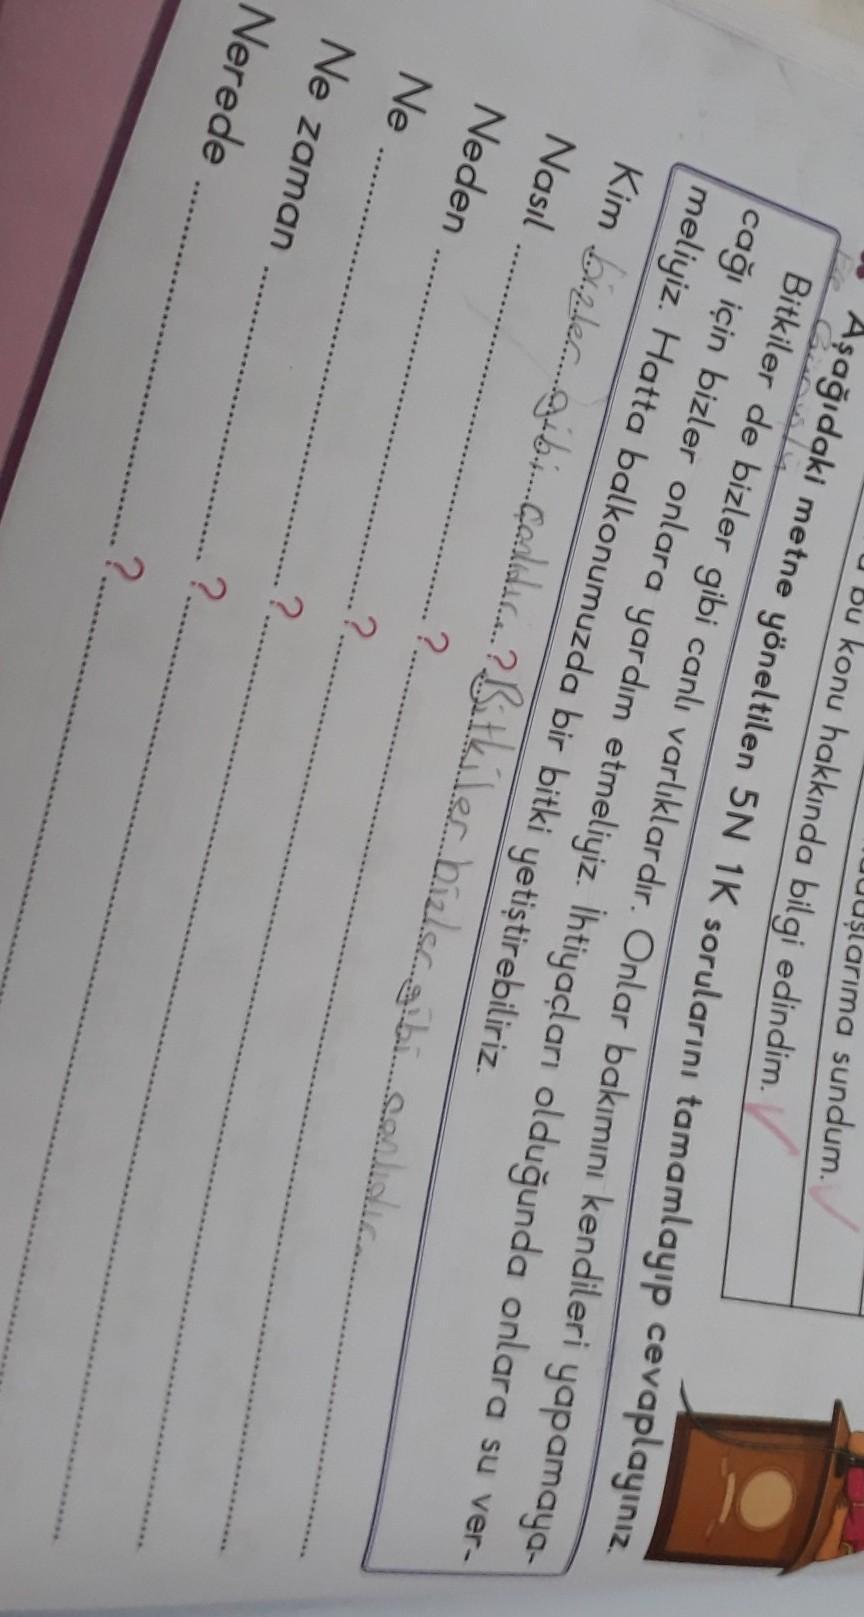 aşlarıma sundum. ✓
bu konu hakkında bilgi edindim. ✓
Aşağıdaki metne yöneltilen 5N 1K sorularını tamamlayıp cevaplayınız.
Bitkiler de bizler gibi canlı varlıklardır. Onlar bakımını kendileri yapamaya-
cağı için bizler onlara yardım etmeliyiz. İhtiyaçları olduğunda onlara su ver-
meliyiz. Hatta balkonumuzda bir bitki yetiştirebiliriz.
Kim bizler gibi canlıdır ? Bitkiler bizler gibi canlıdır.
Nasıl ........ ? ........
Neden ........ ? ........
Ne ........ ? ........
Ne zaman ........ ? ........
Nerede ........ ? ........